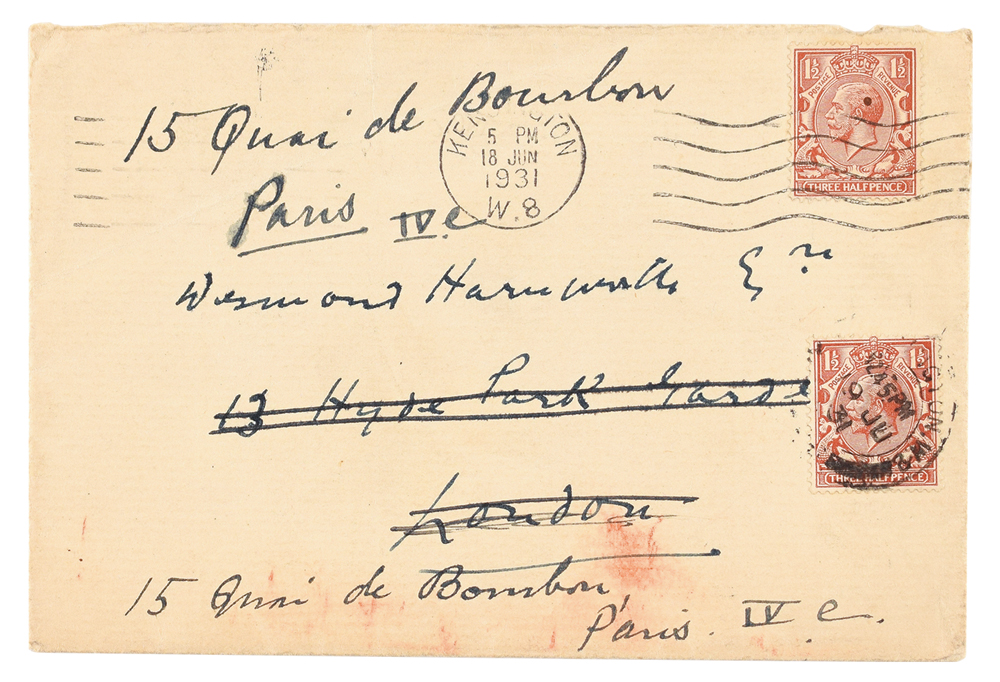 15 Quai de Bourbon
Paris IV e
KENSINGTON
5 PM
18 JUN
1931
W.8
POSTAGE REVENUE
1½ 1½
THREE HALFPENCE
Desmond Harmsworth Esqre
13 Hyde Park Garde
London
POSTAGE REVENUE
1½ 1½
THREE HALFPENCE
45 PM
JU
31
15 Quai de Bourbon,
Paris. IV e.